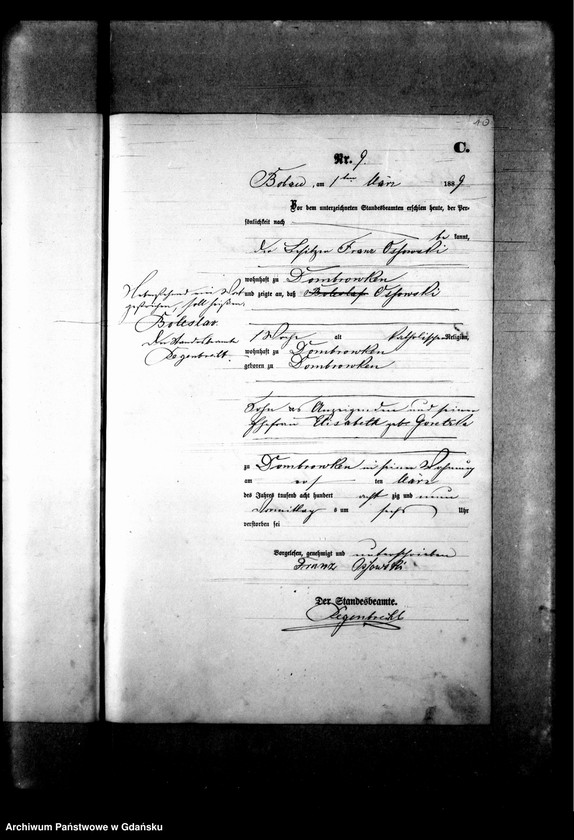 C.
Nr. 9.
Bobau, am 1ten März 1889
Vor dem unterzeichneten Standesbeamten erschien heute, der Per-
sönlichkeit nach
be kannt,
der Besitzer Franz Ossowski
wohnhaft zu Dombrowken
und zeigte an, daß Boleslaf Ossowski
Nebenstehend ein Wort
gestrichen, soll heißen:
Boleslav.
Der Standesbeamte
Segenbrecht.
1 Woche alt katholischer Religion,
wohnhaft zu Dombrowken
geboren zu Dombrowken
Sohn des Anzeigenden und seiner
Ehefrau Elisabeth geb.
zu Dombrowken in seiner Wohnung
am ersten März
des Jahres tausend acht hundert acht zig und neun
Vormittags um sechs Uhr
verstorben sei
Vorgelesen, genehmigt und unterschrieben
Franz Ossowski
Der Standesbeamte.
Segenbrecht
Archiwum Państwowe w Gdańsku